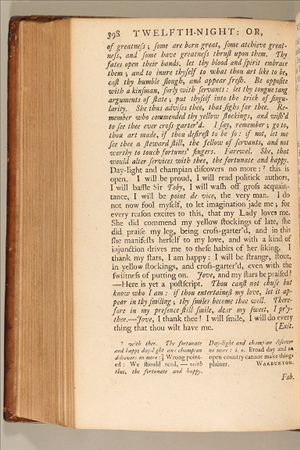 398 TWELFTH-NIGHT: OR,
of greatneſs; ſome are born great, ſome atchieve great-
neſs, and ſome have greatneſs thruſt upon them. Thy
fates open their hands, let thy blood and ſpirit embrace
them; and to inure thyſelf to what thou art like to be,
caſt thy humble ſlough, and appear freſh. Be oppoſite
with a kinſman, ſurly with ſervants: let thy tongue tang
arguments of ſtate; put thyſelf into the trick of ſingu-
larity. She thus adviſes thee, that ſighs for thee. Re-
member who commended thy yellow ſtockings, and wiſh'd
to ſee thee ever croſs-garter'd. I ſay, remember; go to,
thou art made, if thou deſireſt to be ſo: if not, let me
ſee thee a ſteward ſtill, the fellow of ſervants, and not
worthy to touch fortune's fingers. Farewel. She, that
would alter ſervices with thee, the fortunate and happy.
Day-light and champian diſcovers no more: ⁷ this is
open. I will be proud, I will read politick authors,
I will baffle Sir Toby, I will waſh off groſs acquain-
tance, I will be point de vice, the very man. I do
not now fool myſelf, to let imagination jade me; for
every reaſon excites to this, that my Lady loves me.
She did commend my yellow ſtockings of late, ſhe
did praiſe my leg, being croſs-garter'd, and in this
ſhe manifeſts herſelf to my love, and with a kind of
injunction drives me to theſe habits of her liking. I
thank my ſtars, I am happy: I will be ſtrange, ſtout,
in yellow ſtockings, and croſs-garter'd, even with the
ſwiftneſs of putting on. Jove, and my ſtars be praiſed!
—Here is yet a poſtſcript. Thou canſt not chuſe but
know who I am: if thou entertaineſt my love, let it ap-
pear in thy ſmiling; thy ſmiles become thee well. There-
fore in my preſence ſtill ſmile, dear my ſweet, I pr'y-
thee.—Jove, I thank thee! I will ſmile, I will do every
thing that thou wilt have me. [Exit.
⁷ with thee. The fortunate
and happy day-light and champian
diſcovers no more:] Wrong point-
ed: We ſhould read, — with
thee, the fortunate and happy.
Day-light and champian diſcover
no more: i. e. Broad day and an
open country cannot make things
plainer. WARBURTON.
Fab.